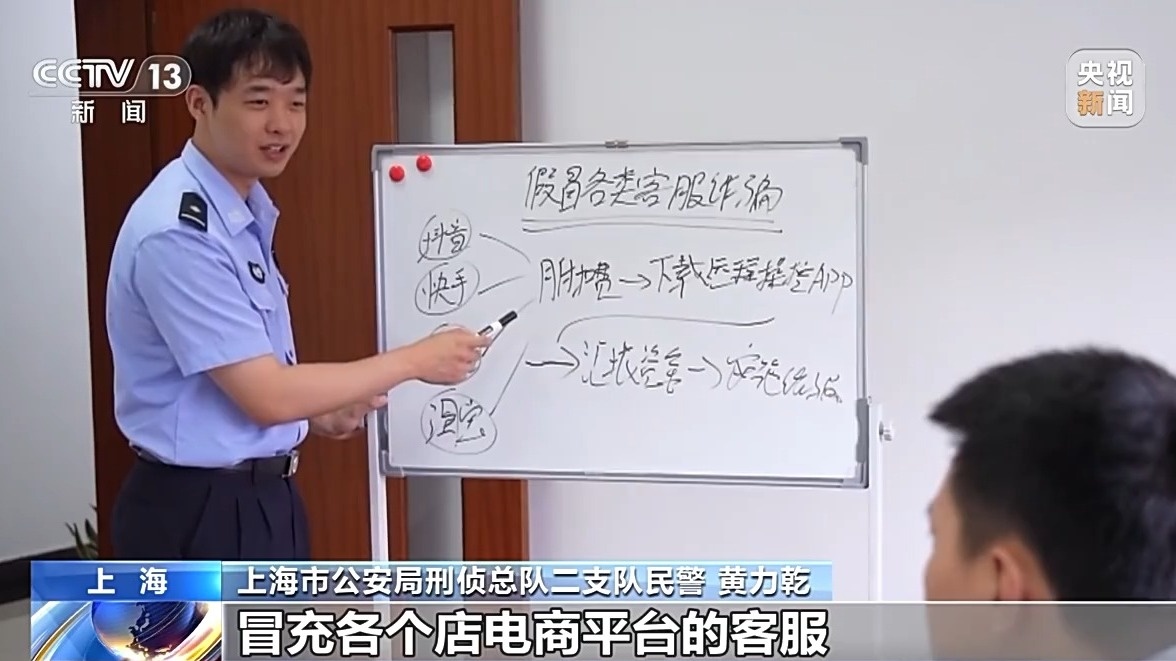 CCTV 13
新闻
央视
新闻
假冒各类客服诈骗
抖音
快手
淘宝
→下载远程操控APP
→汇找资金→实施诈骗
上海
上海市公安局刑侦总队二支队民警 黄力乾
冒充各个店电商平台的客服